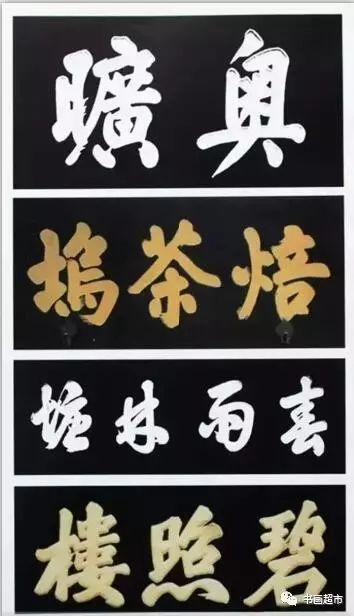 奧曠
焙茶塢
春雨林塘
碧照樓
书画超市